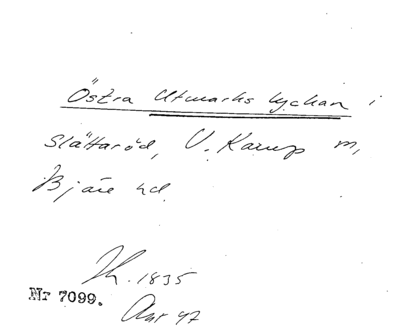 Östra Utmarks lyckan i
Slättaröd, V. Karup m,
Bjäre hd.
Ih. 1835
Nr 7099.
Akt 47